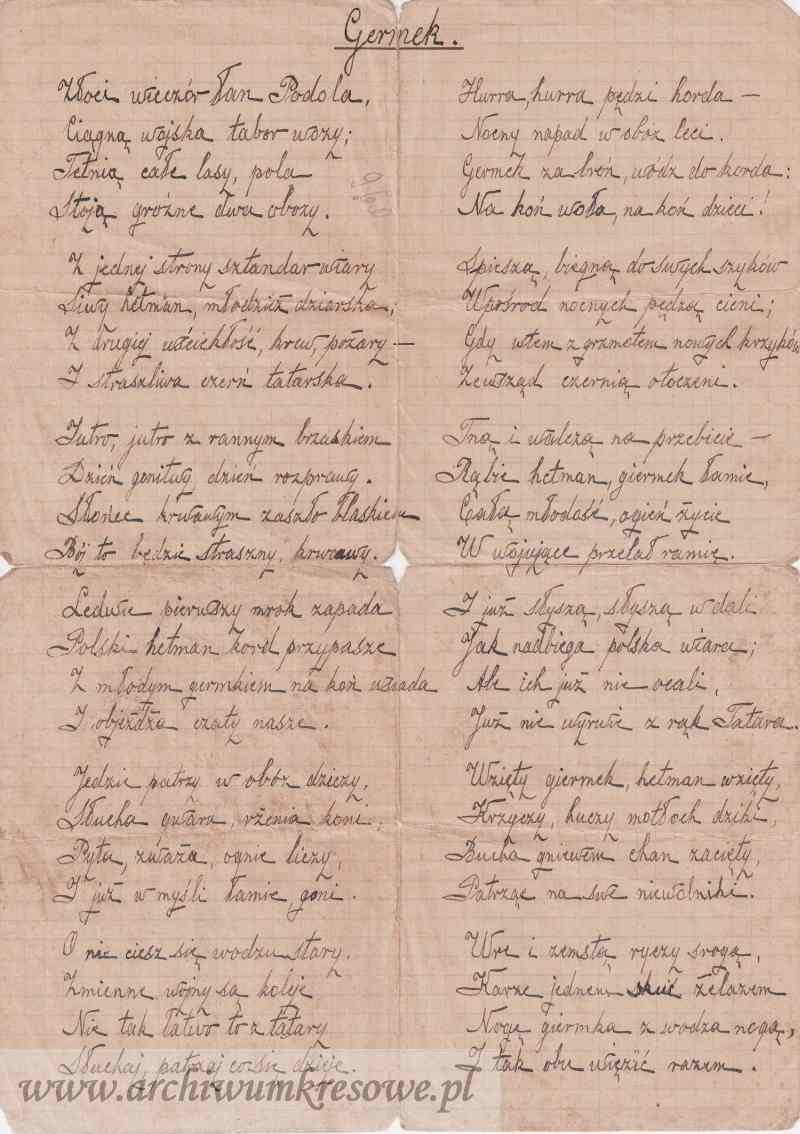 Germek.
Złoci wieczór łan Podola,
Ciągną wojska tabor wozy;
Tętnią całe lasy, pola
Stoją groźne dwu obozy.
Z jednej strony sztandar wiary
Siwy hetman, młodzież dziarska;
Z drugiej wściekłość, krew, pożary —
I straszliwa czerń tatarska.
Jutro, jutro z rannym brzaskiem
Dzień gonitwy, dzień rozprawy.
Słońce krwawym zaszło blaskiem
Bój to będzie straszny, krwawy.
Ledwie pierwszy mrok zapada
Polski hetman kord przypasze
Z młodym germkiem na koń wsiada
I objeżdża czaty nasze.
Jedzie patrzy w obóz dziczy,
Słucha gwaru, rżenia koni,
Pyta, zważa, ognie liczy,
I już w myśli łamie, goni.
O nie ciesz się wodzu stary.
Zmienne wojny są koleje
Nie tak łatwo to z tatary
Słuchaj, patrzaj co się dzieje.
Hurra, hurra pędzi horda —
Nocny napad w obóz leci.
Germek za broń, wódz do korda:
Na koń woła, na koń dzieci!
Spieszą, biegną do swych szyków
Wpośród nocnych pędzą cieni;
Gdy wtem z grzmotem nowych krzyków
Zewsząd czernią otoczeni.
Tną i walczą na przebicie —
Rąbie hetman, giermek łamie,
Całą młodość, ogień życie
W wojujące przelał ramię.
I już słyszą, słyszą w dali
Jak nadbiega polska wiara;
Ale ich już nie ocali,
Już nie wyrwie z rąk Tatara.
Wzięty giermek, hetman wzięty,
Krzyczy, huczy motłoch dziki,
Bucha gniewem chan zacięty,
Patrząc na swe niewolniki.
Wre i zemstą ryczy srogą,
Karze jednem skuć żelazem
Nogę giermka z wodza nogą,
I tak obu więzić razem.
www.archiwumkresowe.pl